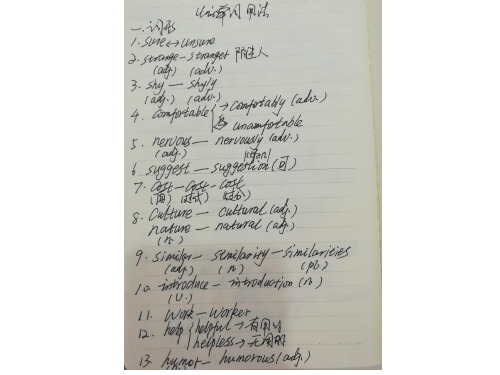 Unit 常用用法
一.词形
1. sure ↔ unsure
2. strange — stranger 陌生人
(adj.) (adv.)
3. shy — shyly
(adj.) (adv.)
4. comfortable → comfortably (adv.)
unamfortable
5. nervous — nervously (adv.)
(adj.)
6 suggest — suggestion (可)
7. cost — cost — cost
8. Culture — cultural (adj.)
nature — natural (adj.)
(n.)
9. similar — similarity — similarities
(adj.) (n.) (pl.)
10. introduce — introduction (n.)
(v.)
11. Work — Worker
12. help helpful → 有用的
helpless → 无用的
13. humor — humorous (adj.)